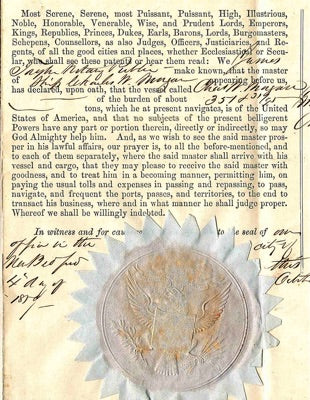 Most Serene, Serene, most Puissant, Puissant, High, Illustrious,
Noble, Honorable, Venerable, Wise, and Prudent Lords, Emperors,
Kings, Republics, Princes, Dukes, Earls, Barons, Lords, Burgomasters,
Schepens, Counsellors, as also Judges, Officers, Justiciaries, and Re-
gents, of all the good cities and places, whether Ecclesiastical or Secu-
lar, who shall see these patents or hear them read: We James
Taylor Notary Public make known, that the master
of Ship Charles W. Morgan appearing before us,
has declared, upon oath, that the vessel called Chas W. Morgan
of the burden of about 351
tons, which he at present navigates, is of the United
States of America, and that no subjects of the present belligerent
Powers have any part or portion therein, directly or indirectly, so may
God Almighty help him. And, as we wish to see the said master pros-
per in his lawful affairs, our prayer is, to all the before-mentioned, and
to each of them separately, where the said master shall arrive with his
vessel and cargo, that they may please to receive the said master with
goodness, and to treat him in a becoming manner, permitting him, on
paying the usual tolls and expenses in passing and repassing, to pass,
navigate, and frequent the ports, passes, and territories, to the end to
transact his business, where and in what manner he shall judge proper.
Whereof we shall be willingly indebted.
In witness and for cause to the seal of our
office in the city of
New Bedford this
4th day of October
187